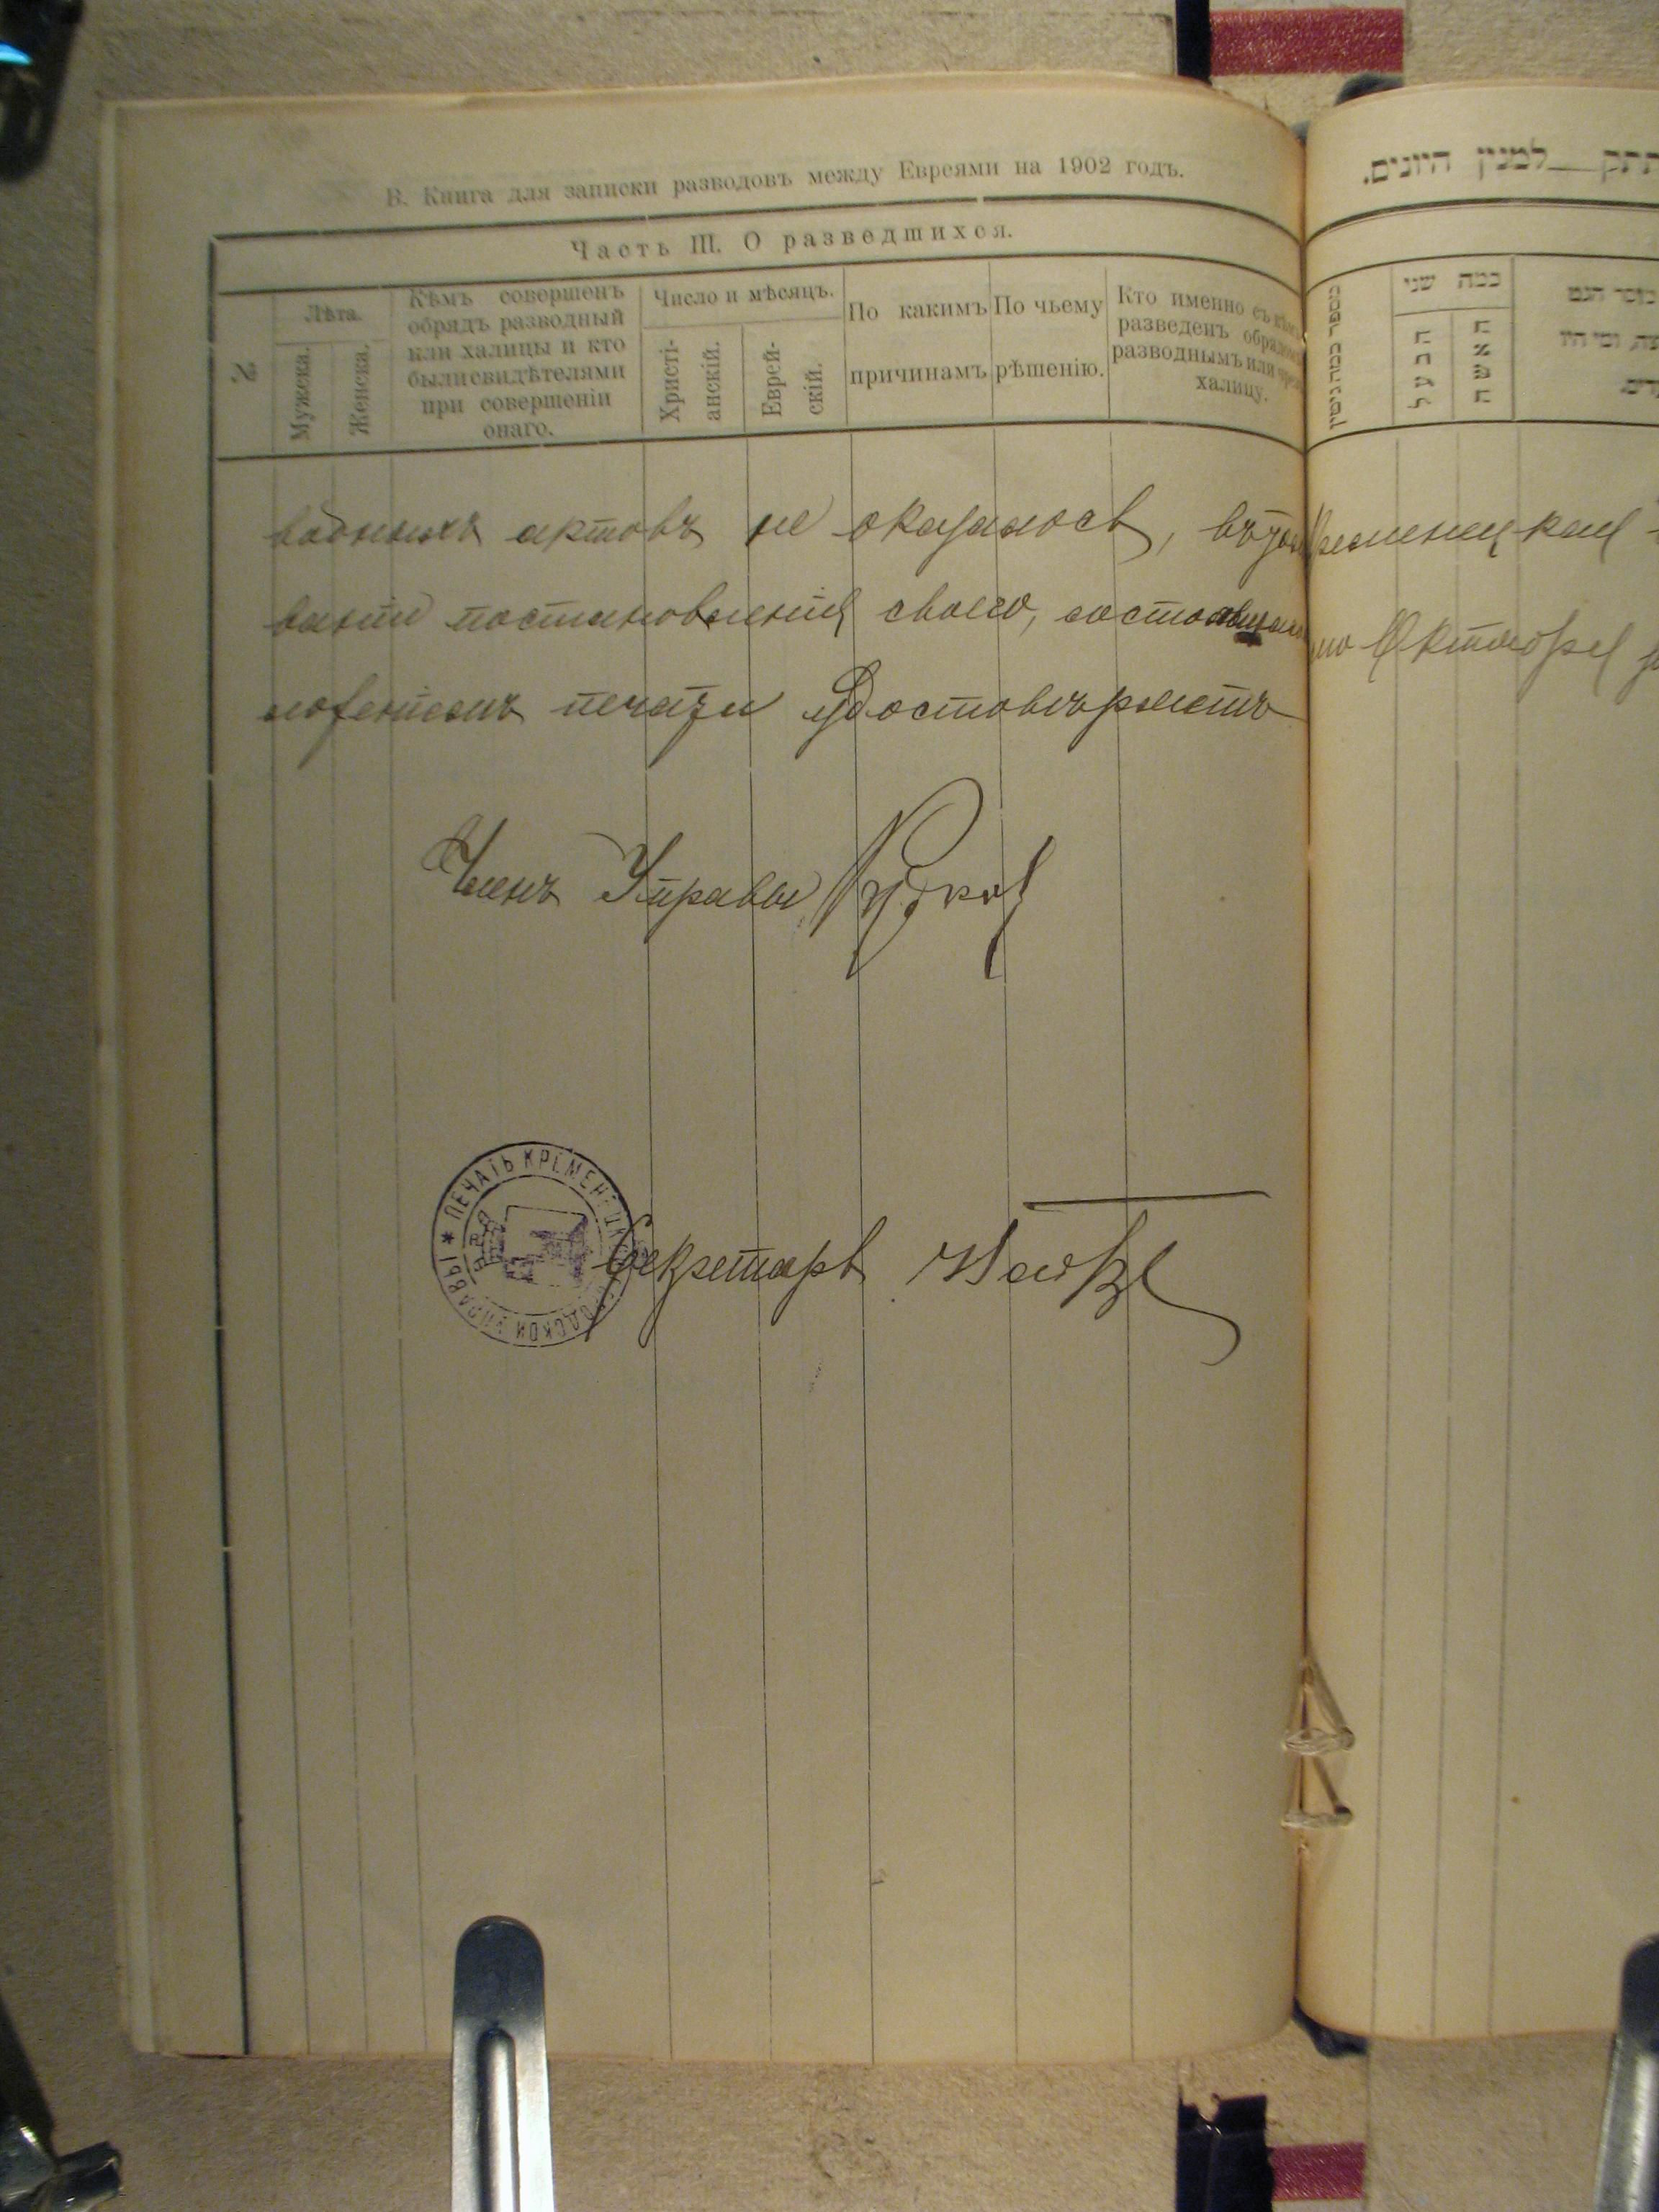 В. Книга для записки разводовъ между Евреями на 1902 годъ.
Часть III. О разведшихся.
№
Лѣта.
Мужска.
Женска.
Кѣмъ совершенъ
обрядъ разводный
или халицы и кто
были свидѣтелями
при совершеніи
онаго.
Число и мѣсяцъ.
Христі-
анскій.
Еврей-
скій.
По какимъ
причинамъ
По чьему
рѣшенію.
Кто именно съ кѣмъ
разведенъ обрядомъ
разводнымъ или чрезъ
халицу.
водныхъ актовъ не оказалось, въ
ваніи постановленія своего, состоявшаго
ложеніемъ печати удостовѣряетъ
Членъ Управы
ПЕЧАТЬ КРЕМЕНЕЦКОЙ ГОРОДСКОЙ УПРАВЫ *
Секретарь
למנין היונים.
כמה שני
הבעל
האשה
Октября